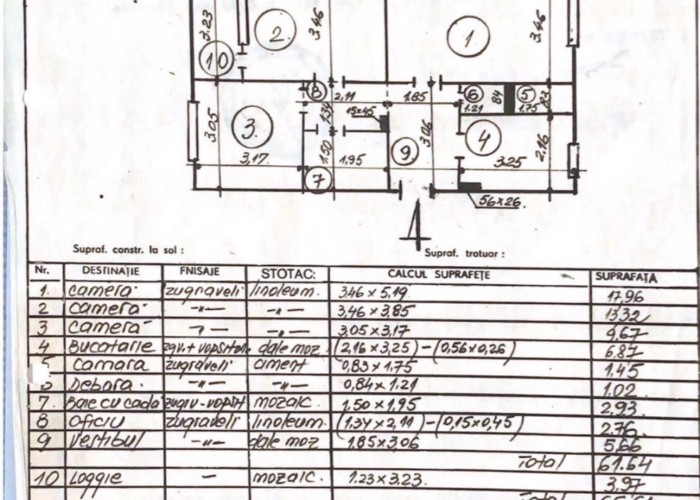 3.23
3.46
3.46
2
1
10
8
2,11
1.85
6
1.21
84
5
1.75
83
3.05
3
1.34
15x45
3.06
4
2.16
1.50
3,17
1,95
9
3.25
7
56x26.
Supraf. constr. la sol :
Supraf. trotuar :
Nr. DESTINAȚIE FNISAJE STOTAC: CALCUL SUPRAFEȚE SUPRAFAȚA
1. camera zugraveli linoleum. 3.46 x 5.19 17,96
2 camera -"- -"- 3,46 x 3,85 13.32
3 camera -"- -"- 3,05 x 3.17 9,67
4 Bucatarie zgv.+vopsitorie dale moz (2,16 x 3.25) - (0,56 x 0,26) 6.87
5 camara zugraveli ciment 0.83 x 1.75 1.45
Debara. -"- -"- 0,84 x 1.21 1.02
7. Baie cu cada zugrv-vopsit mozaic. 1.50 x 1,95 2.93
8 Oficiu zugraveli linoleum. (1,34 x 2,11) - (0,15 x 0,45) 2.76
9 Vestibul -"- dale moz 1.85 x 3.06 5,66
Total 61.64
10 Loggie - mozaic. 1.23 x 3.23. 3,97
Total